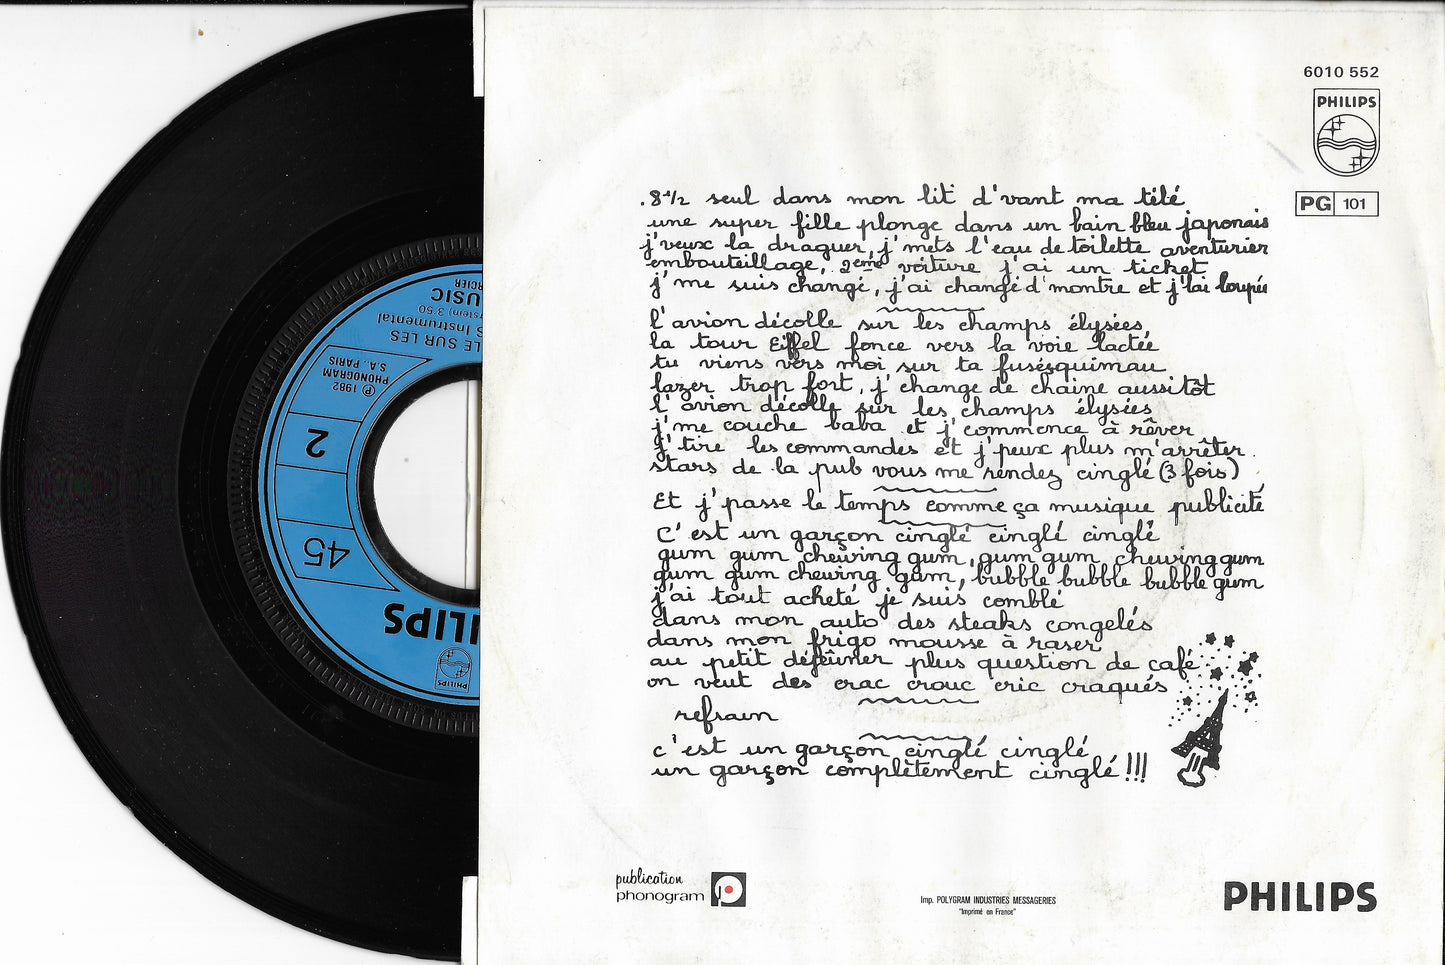 6010 552
PHILIPS
PG 101
. 8 1/2 seul dans mon lit d'vant ma télé
une super fille plonge dans un bain bleu japonais
j'veux la draguer, j'mets l'eau de toilette aventurier
embouteillage, 2eme voiture j'ai un ticket
j'me suis changé, j'ai changé d'montre et j'lai loupée
l'avion décolle sur les champs élysées
la tour Eiffel fonce vers la voie lactée
tu viens vers moi sur ta fuséesquimau
lazer trop fort, j'change de chaine aussitôt
l'avion décolle sur les champs élysées
j'me couche baba et j'commence à rêver
j'tire les commandes et j'peux plus m'arrêter.
stars de la pub vous me rendez cinglé (3 fois)
Et j'passe le temps comme ça musique publicité
C'est un garçon cinglé cinglé cinglé
gum gum chewing gum, gum gum chewing gum
gum gum chewing gum, bubble bubble bubble gum
j'ai tout acheté je suis comblé
dans mon auto des steaks congelés
dans mon frigo mousse à raser
au petit déjeûner plus question de café
on veut des crac crouc cric craqués
refrain
c'est un garçon cinglé cinglé
un garçon complètement cinglé !!!
publication
phonogram
Imp. POLYGRAM INDUSTRIES MESSAGERIES
"Imprimé en France"
PHILIPS
RCIER
USIC
rstein) 3'50
S Instrumental
LE SUR LES
℗ 1982
PHONOGRAM
S.A., PARIS
2
45
ILIPS
PHILIPS